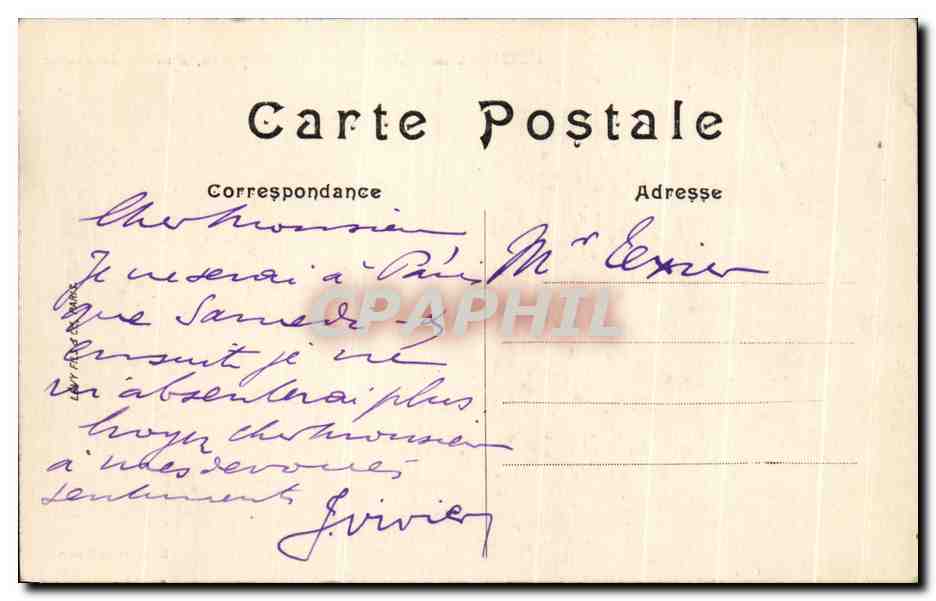 Carte Postale
Correspondance
Adresse
Cher Monsieur
Je ne serai à Paris
que Samedi
ensuite je ne
m'absenterai plus
Croyez cher Monsieur
à mes dévoués
sentiments
J. Vivier
Mr Texier
LEVY FILS & Cie PARIS
CPAPHIL